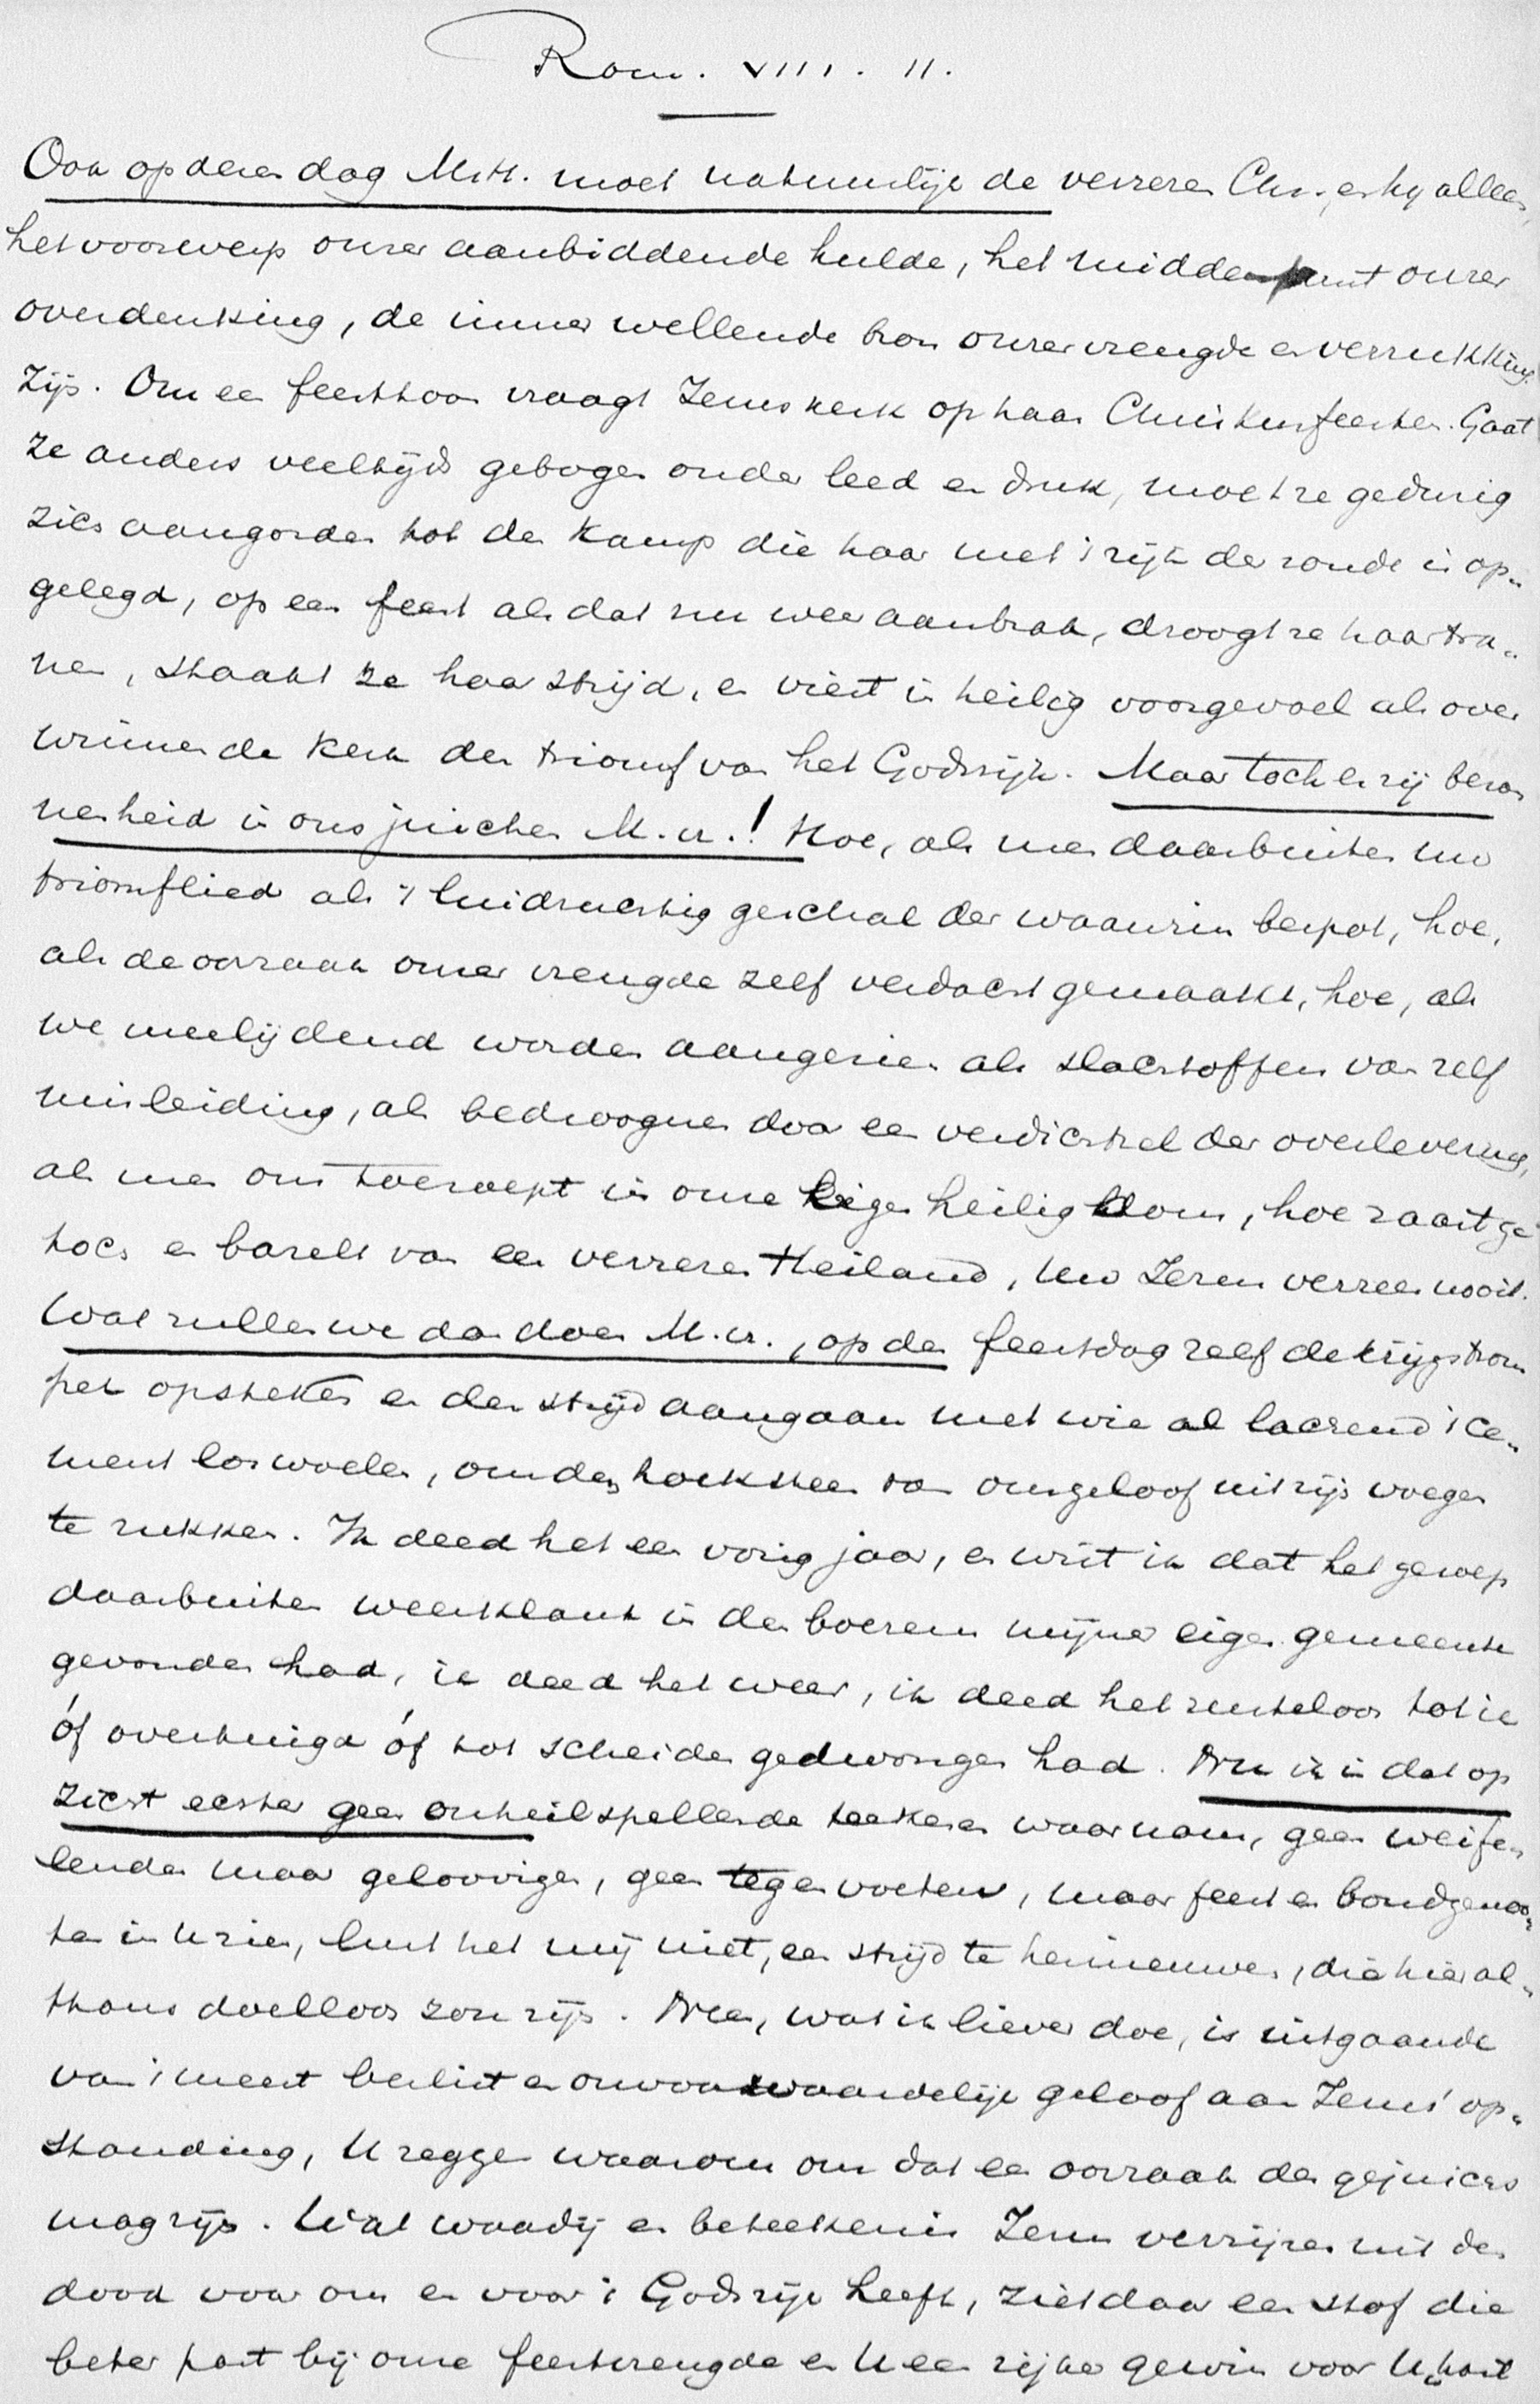 Rom. VIII. 11.
Ook op dezen dag M.H. moet natuurlijk de verrezen Chr., en hij alleen,
het voorwerp onzer aanbiddende hulde, het middenpunt onzer
overdenking, de immer wellende bron onzer vreugde en verrukking
zijn. Om een feesttoon vraagt Jezus kerk op haar Christusfeesten. Gaat
ze anders veeltijds gebogen onder leed en druk, moet ze gedurig
zich aangorden tot den kamp die haar met 't rijk der zonde is op-
gelegd, op een feest als dat nu weer aanbrak, droogt ze haar tra-
nen, staakt ze haar strijd, en viert in heilig voorgevoel als over
winnende kerk den triomf van het Godsrijk. Maar toch er zij bezon
nenheid in ons juichen M.U.! Hoe, als men daarbuiten uw
triomflied als 't luidruchtig geschal der waanzin bespot, hoe,
als de oorzaak onzer vreugde zelf verdacht gemaakt, hoe, als
we meelijdend worden aangezien als slachtoffers van zelf
misleiding, als bedroognen door een verdichtsel der overlevering,
als men ons toeroept in onze eigen heiligdom, hoe raast ge
toch en bazelt van een verrezen Heiland, Uw Jezus verrees nooit.
Wat zullen we dan doen M.U., op den feestdag zelf de krijgstrom
pet opsteken en den strijd aangaan met wie al lachend 't ce-
ment loswoelen, om den hoeksteen van ons geloof uit zijn voegen
te rukken. Ik deed het een vorig jaar, en wist ik dat het geroep
daarbuiten weerklank in den boezem mijner eigen gemeente
gevonden had, ik deed het weer, ik deed het rusteloos tot ik
óf overtuigd óf tot scheiden gedwongen had. Nu ik in dat op
zicht echter geen onheilspellende teekenen waarnam, geen weife-
lenden maar geloovigen, geen tegenvoeters, maar feest en bondgenoo-
ten in U zien, lust het mij niet, een strijd te hernieuwen, die hier al-
thans doelloos zou zijn. Neen, wat ik liever doe, is uitgaande
van 't meest beslist en onvoorwaardelijk geloof aan Jezus' op-
standing, U zeggen waarom ons dat een oorzaak des gejuichs
mag zijn. Wat waardij en beteekenis Jezus verrijzen uit den
dood voor ons en voor 't Godsrijk heeft, ziet daar een stof die
beter past bij onze feestvreugde en U een rijker gewin voor Uw hart